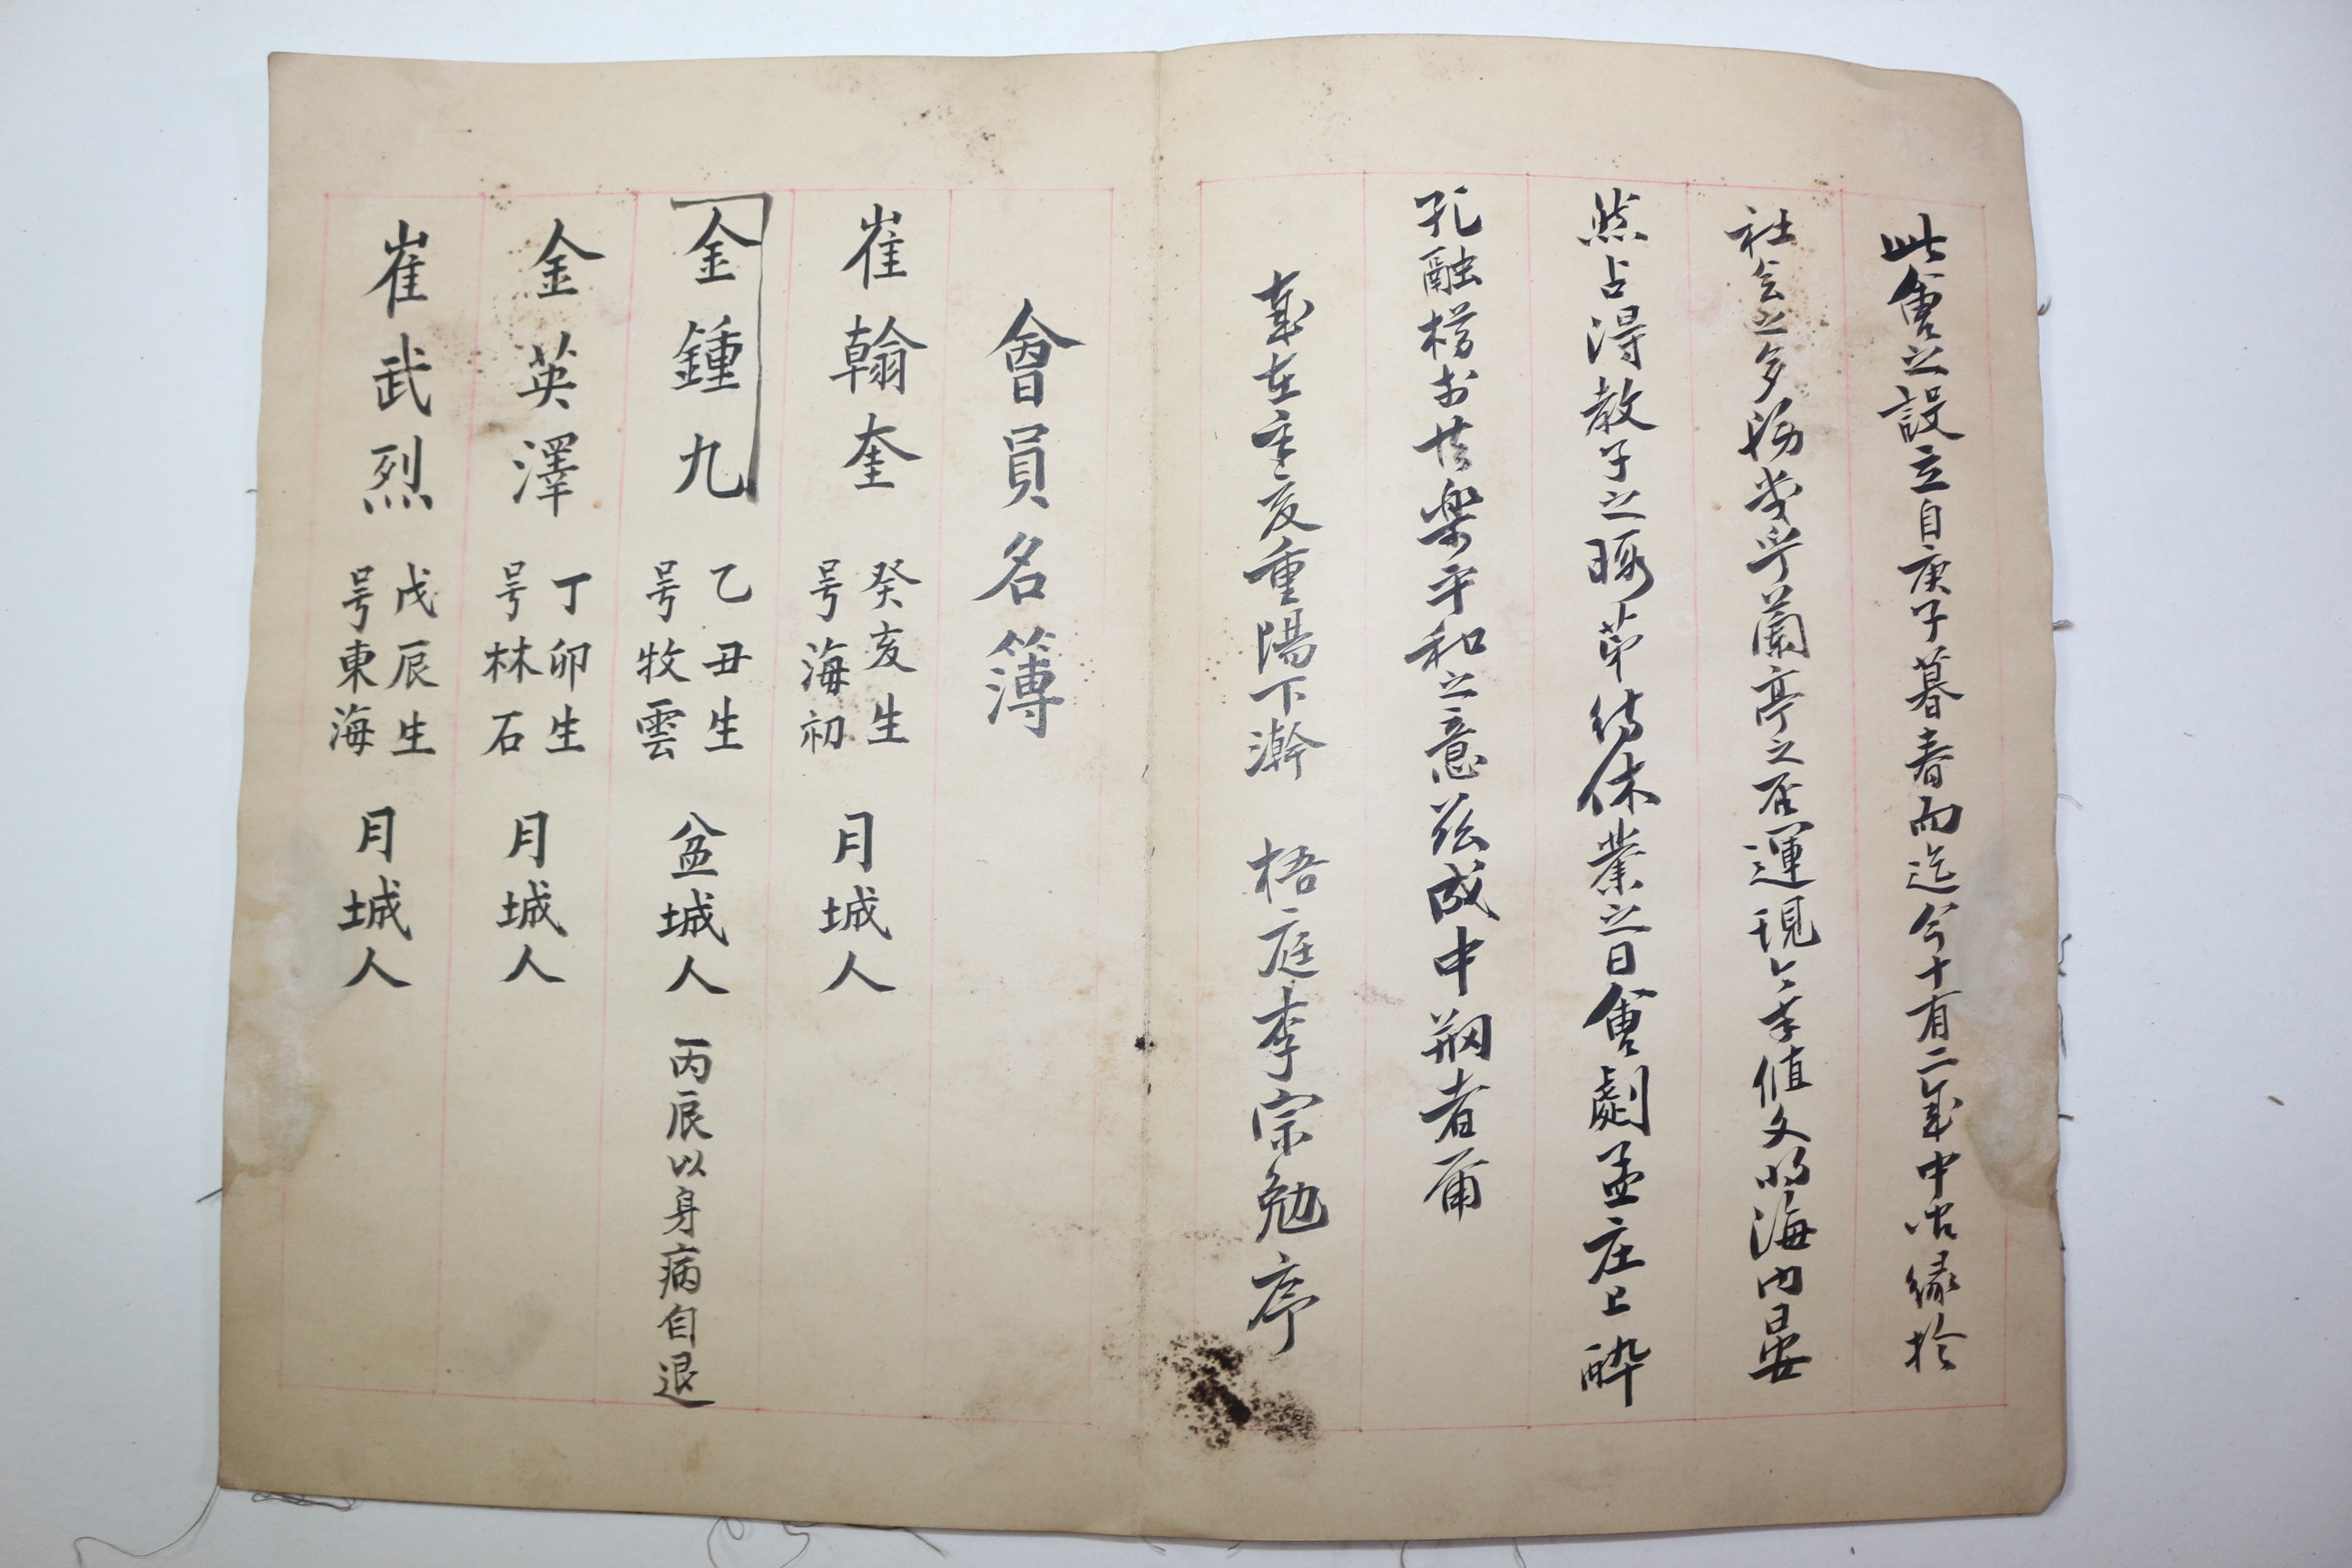 此會之設立自庚子暮春而迄今十有二年中間緣於
社会之多務幾乎蘭亭之否運現今幸値文明海內晏
然占得教子之暇
待休業之日會劇孟庄上醉
孔融樽於共樂平和之意玆成中
者爾
歲在辛亥重陽下澣 梧庭李宗勉序
會員名簿
崔翰奎 癸亥生 号海初 月城人
金鍾九 乙丑生 号牧雲 盆城人 丙辰以身病自退
金英澤 丁卯生 号林石 月城人
崔武烈 戊辰生 号東海 月城人